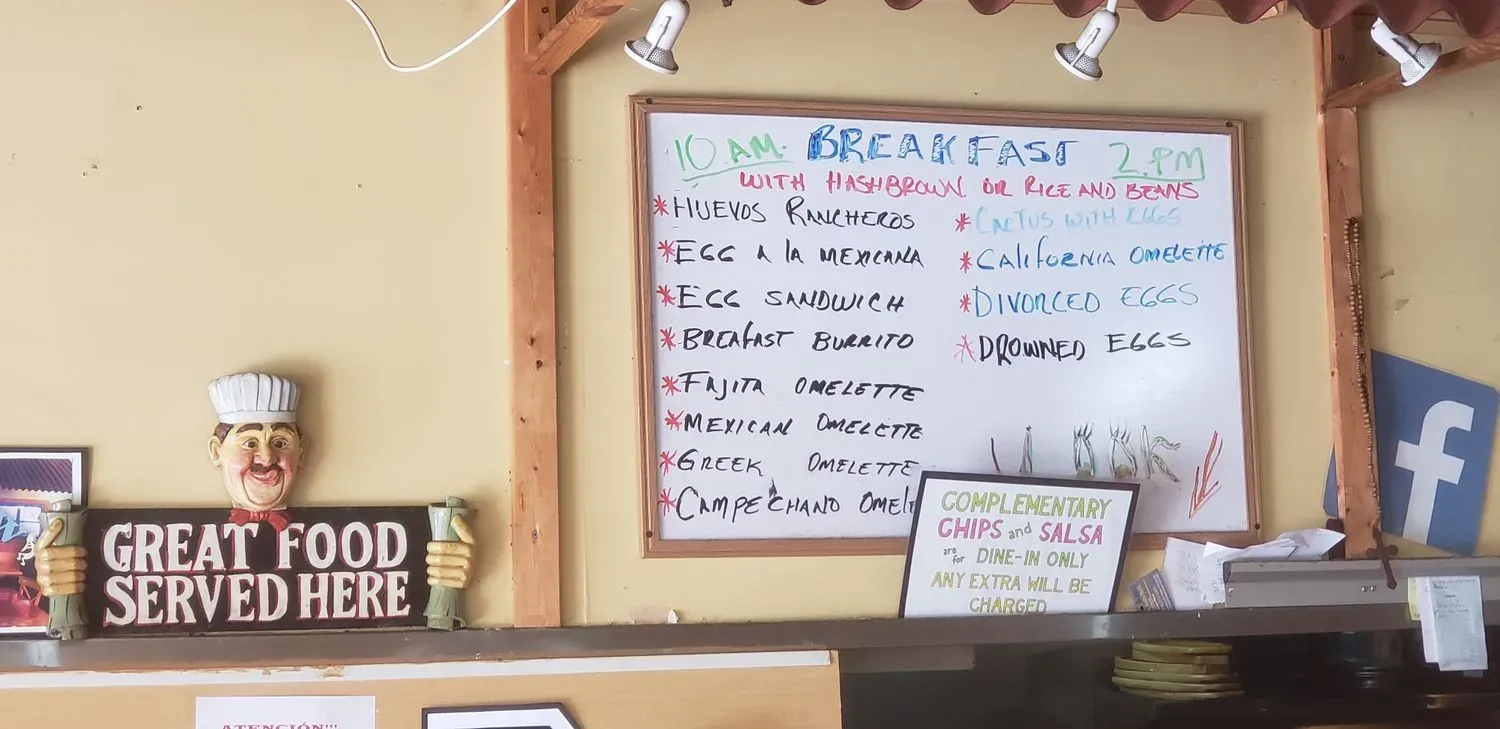 10 AM. BREAKFAST 2.PM
WITH HASHBROWN OR RICE AND BEANS
*HUEVOS RANCHEROS
*EGG A la MEXICANA
*EGG SANDWICH
*BREAfAST BURRITO
*FAJITA OMELETTE
*MEXICAN OMELETTE
*GREEK OMELETTE
*CAMPECHANO OMELE
*CACTUS WITH EGGS
*CALIfORNIA OMELETTE
*DIVORCED EGGS
*DROWNED EGGS
COMPLEMENTARY
CHIPS and SALSA
are for DINE-IN ONLY
ANY EXTRA WILL BE
CHARGED
GREAT FOOD
SERVED HERE
f
ATENCIÓN!!!